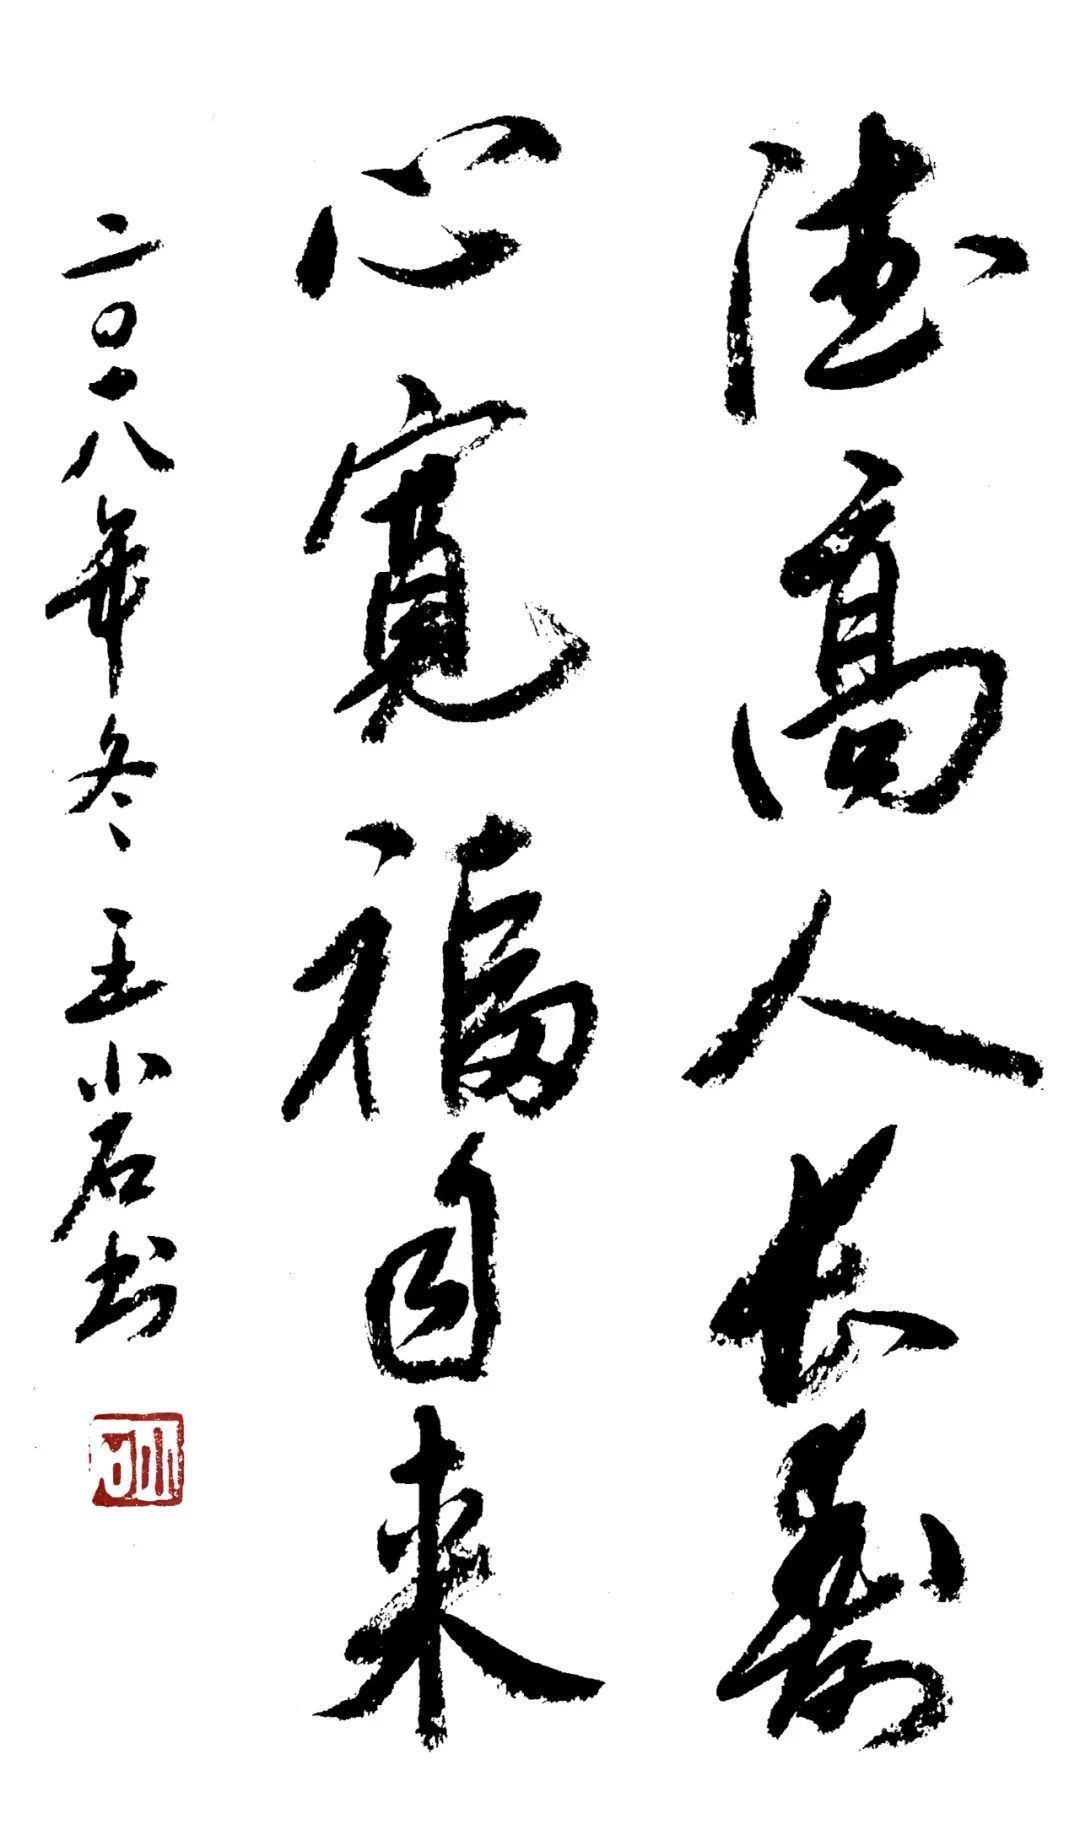 德高人长寿
心寬福自来
二〇一八年冬 王小石书
小石